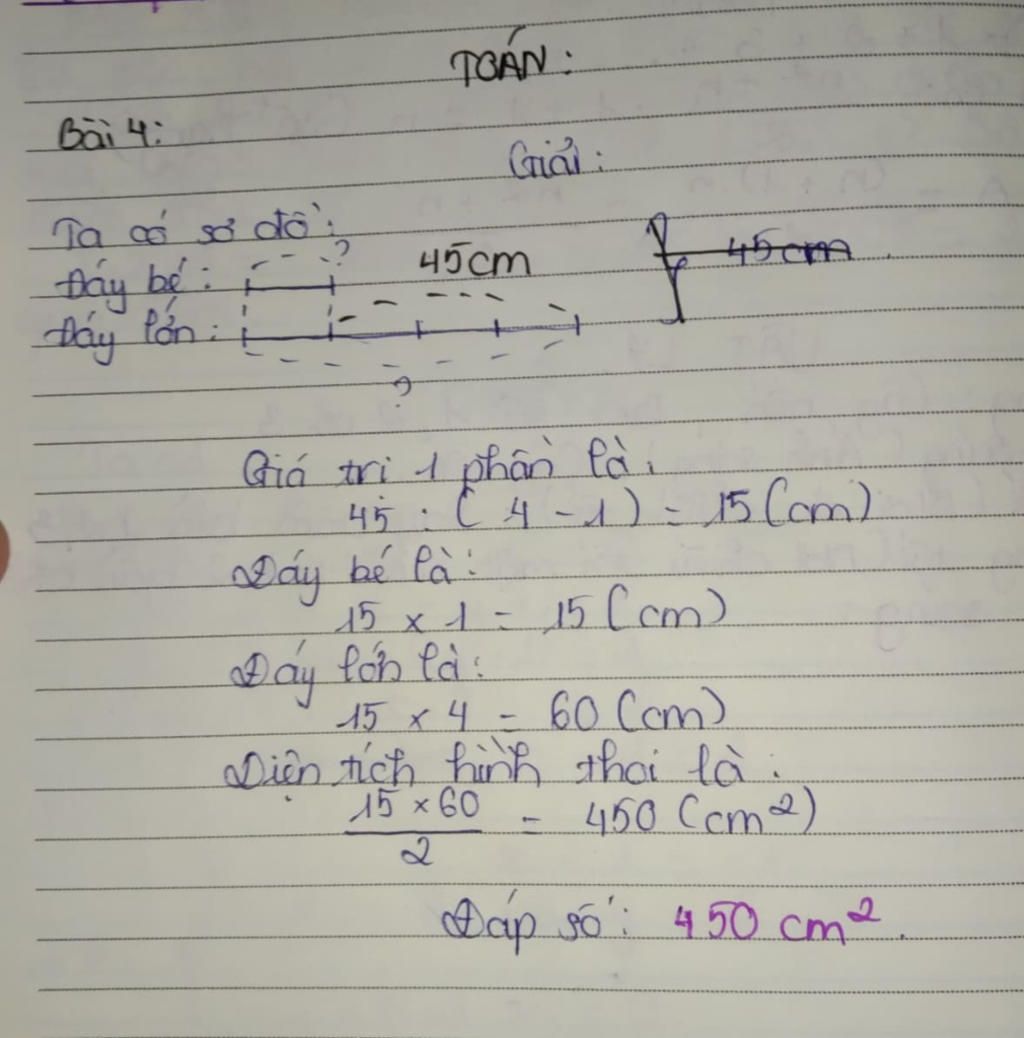 TOÁN:
Bài 4:
Giải:
Ta có sơ đồ:
?
45cm
45cm
Đáy bé:
Đáy lớn:
?
Giá trị 1 phần là:
45 : ( 4 - 1 ) = 15 (cm)
Đáy bé là:
15 × 1 = 15 (cm)
Đáy lớn là:
15 × 4 = 60 (cm)
Diện tích hình thoi là:
15 × 60
2
= 450 (cm²)
Đáp số: 450 cm².